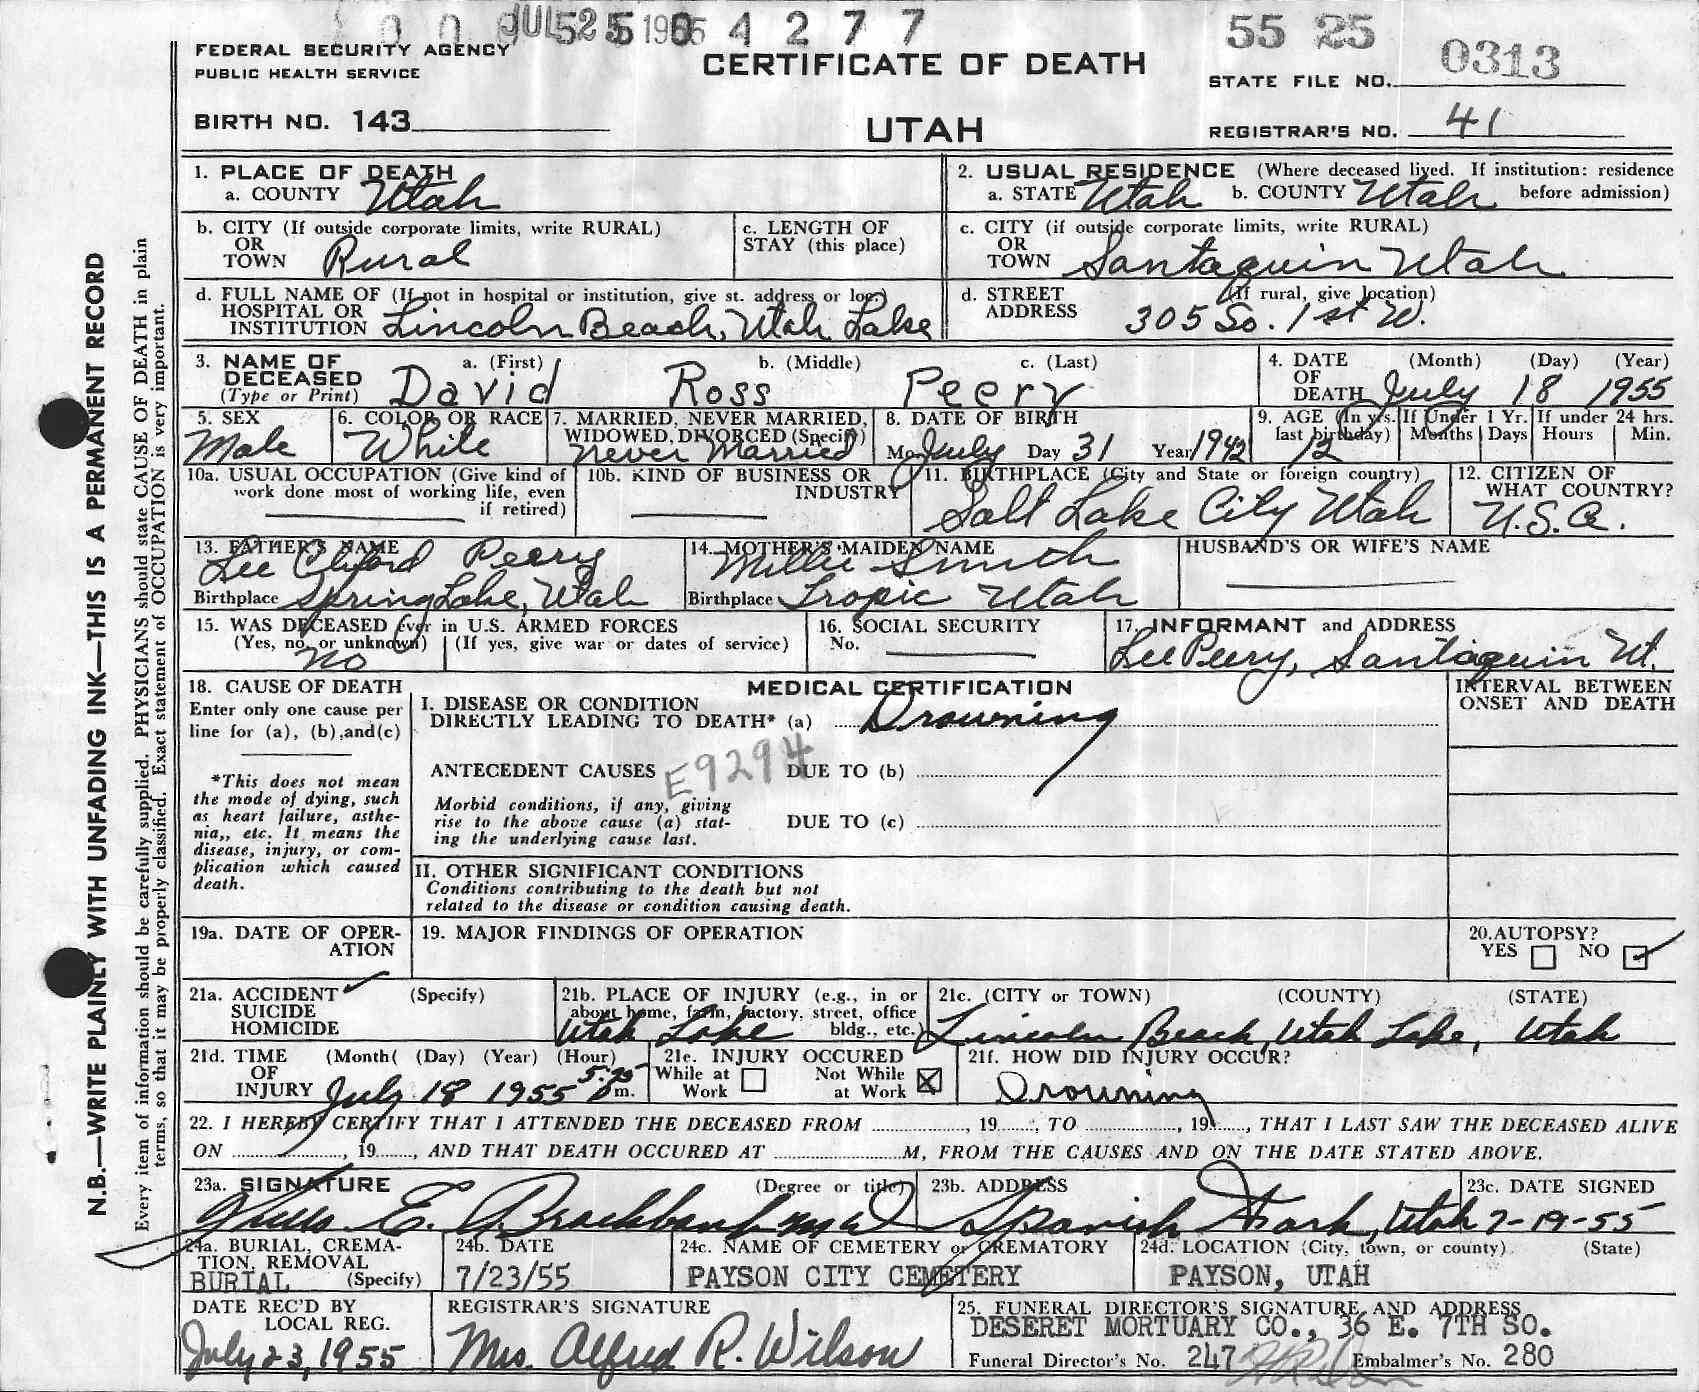 JUL 25 1955 4277
55 25
FEDERAL SECURITY AGENCY
PUBLIC HEALTH SERVICE
CERTIFICATE OF DEATH
STATE FILE NO. 0313
BIRTH NO. 143
UTAH
REGISTRAR'S NO. 41
N.B.—WRITE PLAINLY WITH UNFADING INK—THIS IS A PERMANENT RECORD
Every item of information should be carefully supplied. PHYSICIANS should state CAUSE OF DEATH in plain
terms, so that it may be properly classified. Exact statement of OCCUPATION is very important.
1. PLACE OF DEATH
a. COUNTY Utah
2. USUAL RESIDENCE (Where deceased lived. If institution: residence
a. STATE Utah b. COUNTY Utah before admission)
b. CITY (If outside corporate limits, write RURAL)
OR
TOWN Rural
c. LENGTH OF
STAY (this place)
c. CITY (if outside corporate limits, write RURAL)
OR
TOWN Santaquin Utah
d. FULL NAME OF (If not in hospital or institution, give st. address or loc.)
HOSPITAL OR
INSTITUTION Lincoln Beach, Utah Lake
d. STREET (If rural, give location)
ADDRESS 305 So. 1st W.
3. NAME OF a. (First) b. (Middle) c. (Last)
DECEASED
(Type or Print) David Ross Peery
4. DATE (Month) (Day) (Year)
OF
DEATH July 18 1955
5. SEX
Male
6. COLOR OR RACE
White
7. MARRIED, NEVER MARRIED,
WIDOWED, DIVORCED (Specify)
Never Married
8. DATE OF BIRTH
Mo. July Day 31 Year 1942
9. AGE (In yrs.
last birthday)
12
If Under 1 Yr.
Months Days
If under 24 hrs.
Hours Min.
10a. USUAL OCCUPATION (Give kind of
work done most of working life, even
if retired)
10b. KIND OF BUSINESS OR
INDUSTRY
11. BIRTHPLACE (City and State or foreign country)
Salt Lake City Utah
12. CITIZEN OF
WHAT COUNTRY?
U.S.A.
13. FATHER'S NAME
Lee Cliford Peery
Birthplace Spring Lake, Utah
14. MOTHER'S MAIDEN NAME
Millie Smith
Birthplace Tropic Utah
HUSBAND'S OR WIFE'S NAME
15. WAS DECEASED ever in U.S. ARMED FORCES
(Yes, no, or unknown) (If yes, give war or dates of service)
No
16. SOCIAL SECURITY
No.
17. INFORMANT and ADDRESS
Lee Peery, Santaquin Ut.
18. CAUSE OF DEATH
Enter only one cause per
line for (a), (b), and (c)
*This does not mean
the mode of dying, such
as heart failure, asthe-
nia,, etc. It means the
disease, injury, or com-
plication which caused
death.
MEDICAL CERTIFICATION
I. DISEASE OR CONDITION
DIRECTLY LEADING TO DEATH* (a) Drowning
E9294
ANTECEDENT CAUSES DUE TO (b)
Morbid conditions, if any, giving
rise to the above cause (a) stat-
ing the underlying cause last.
DUE TO (c)
II. OTHER SIGNIFICANT CONDITIONS
Conditions contributing to the death but not
related to the disease or condition causing death.
INTERVAL BETWEEN
ONSET AND DEATH
19a. DATE OF OPER-
ATION
19. MAJOR FINDINGS OF OPERATION
20. AUTOPSY?
YES NO
21a. ACCIDENT (Specify)
SUICIDE
HOMICIDE
21b. PLACE OF INJURY (e.g., in or
about home, farm, factory, street, office
bldg., etc.)
Utah Lake
21c. (CITY or TOWN) (COUNTY) (STATE)
Lincoln Beach, Utah Lake, Utah
21d. TIME (Month( (Day) (Year) (Hour)
OF
INJURY July 18 1955 m.
21e. INJURY OCCURED
While at Work
Not While at Work
21f. HOW DID INJURY OCCUR?
Drowning
22. I HEREBY CERTIFY THAT I ATTENDED THE DECEASED FROM , 19 , TO , 19 , THAT I LAST SAW THE DECEASED ALIVE
ON , 19 , AND THAT DEATH OCCURED AT M, FROM THE CAUSES AND ON THE DATE STATED ABOVE.
23a. SIGNATURE (Degree or title)
E. Brockbank
23b. ADDRESS
Spanish Fork, Utah
23c. DATE SIGNED
7-19-55
24a. BURIAL, CREMA-
TION, REMOVAL
BURIAL (Specify)
24b. DATE
7/23/55
24c. NAME OF CEMETERY or CREMATORY
PAYSON CITY CEMETERY
24d. LOCATION (City, town, or county) (State)
PAYSON, UTAH
DATE REC'D BY
LOCAL REG.
July 23, 1955
REGISTRAR'S SIGNATURE
Mrs. Alfred R. Wilson
25. FUNERAL DIRECTOR'S SIGNATURE AND ADDRESS
DESERET MORTUARY CO., 36 E. 7TH SO.
Funeral Director's No. 247 Embalmer's No. 280